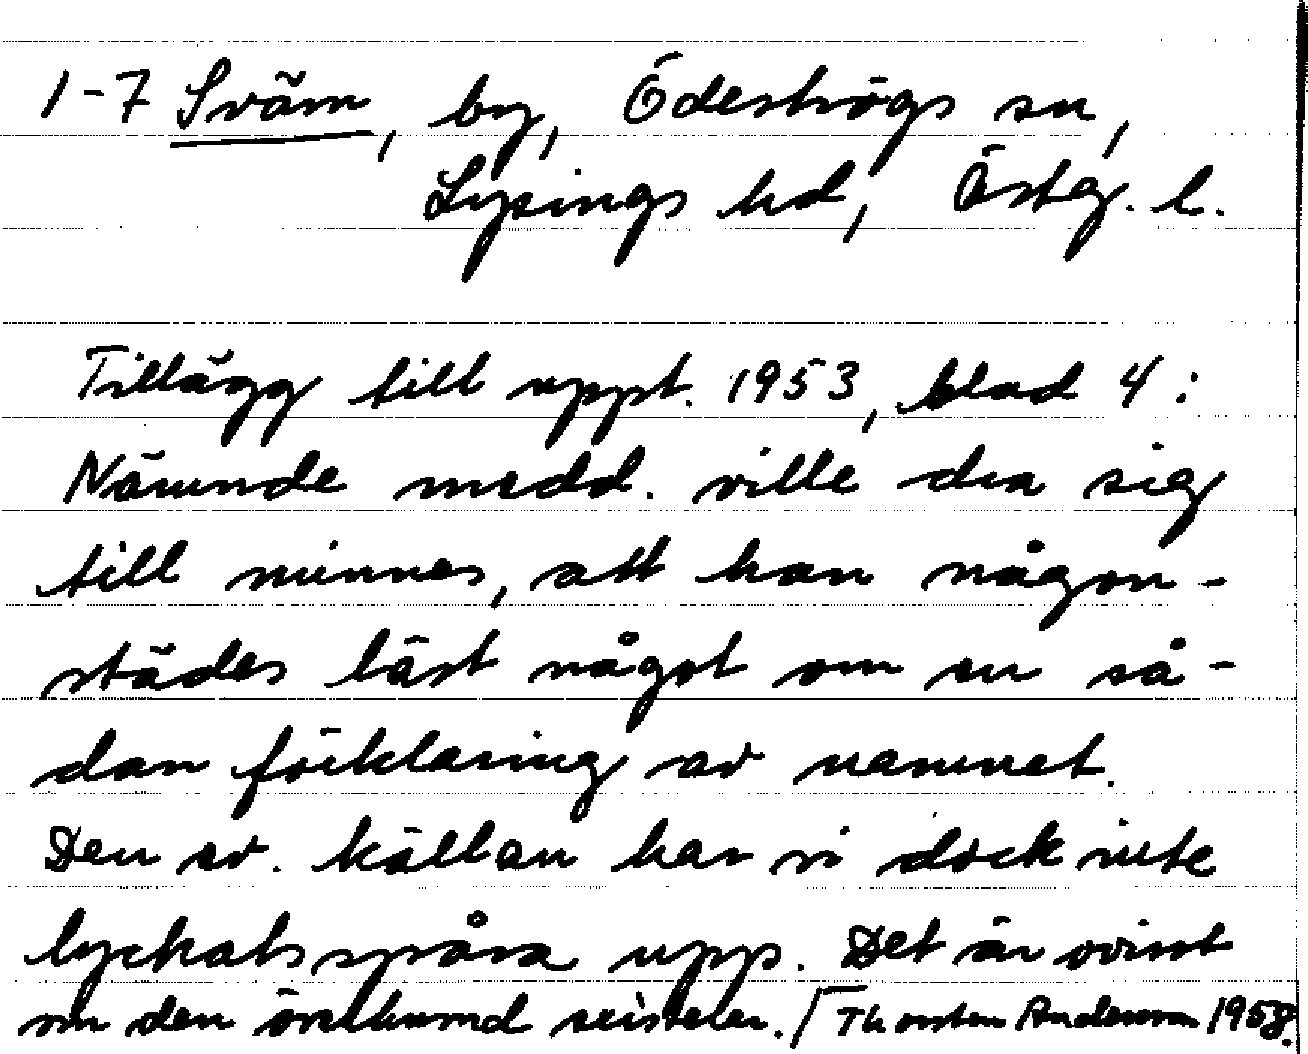 1-7 Sväm, by, Ödeshögs sn,
Lysings hd, Östg. l.
Tillägg till uppt. 1953, blad 4:
Nämnde medd. ville dra sig
till minnes, att han någon-
städes läst något om en så-
dan förklaring av namnet.
Den ev. källan har vi dock inte
lyckats spåra upp. Det är ovisst
om den överhuvud existerar. / Thorsten Andersson 1958.